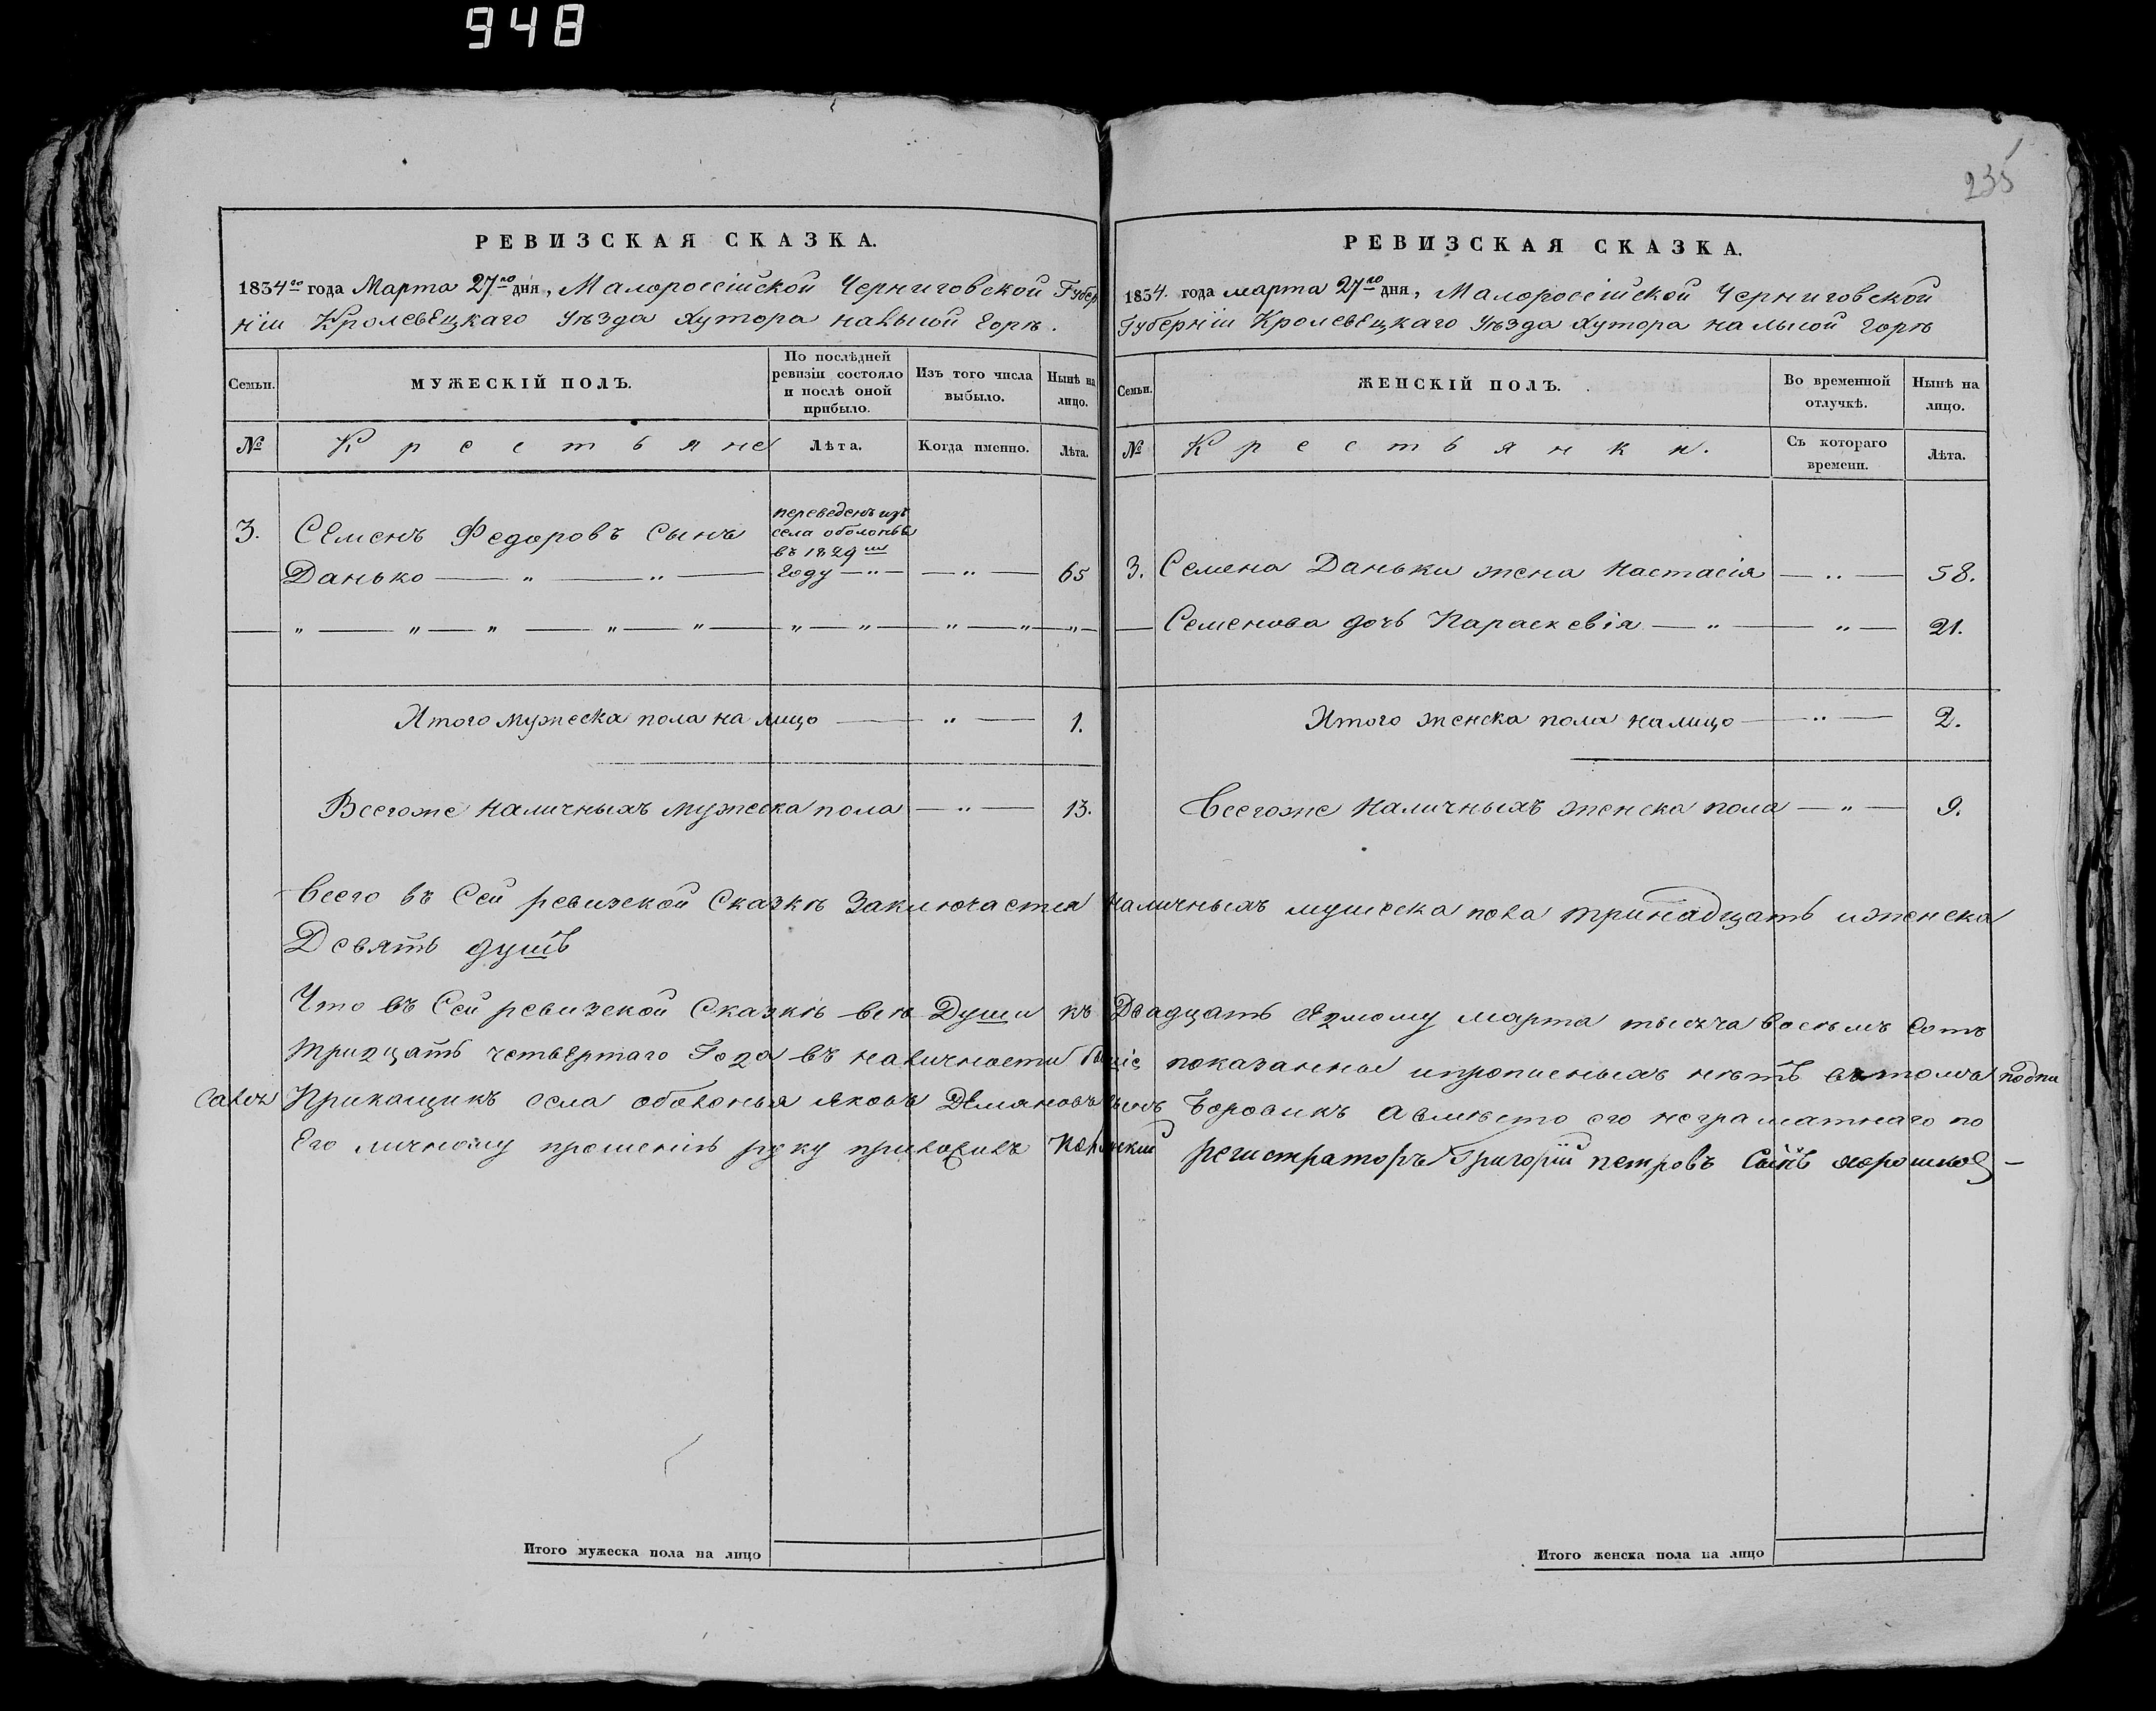 948
235
РЕВИЗСКАЯ СКАЗКА.
1834го года Марта 27го дня, Малороссійской Черниговской Губер
ніи Кролевецкаго Уѣзда Хутора налысой горѣ.
Семьи.
МУЖЕСКІЙ ПОЛЪ.
По послѣдней ревизіи состояло и послѣ оной прибыло.
Изъ того числа выбыло.
Нынѣ на лицо.
№
Крестьяне
Лѣта.
Когда именно.
Лѣта.
3. Семенъ Федоровъ сынъ
переведенъ изъ
села оболонья
въ 1829мъ
Данько — " — " — году — " — — " — 65
— " — " — " — " — " — " — " — " — " — " —
Итого мужеска пола на лицо — " — 1.
Всегоже наличныхъ мужеска пола — " — 13.
РЕВИЗСКАЯ СКАЗКА.
1834. года марта 27го дня, Малороссійской Черниговской
Губерніи Кролевецкаго Уѣзда Хутора на лысой горѣ
Семьи.
ЖЕНСКІЙ ПОЛЪ.
Во временной отлучкѣ.
Нынѣ на лицо.
№
Крестьянки.
Съ котораго времени.
Лѣта.
3. Семена Даньки жена Настасія — " — 58.
— Семенова дочь Параскевія — " — " — 21.
Итого женска пола налицо — " — 2.
Всегоже наличныхъ женска пола — " — 9.
Всего въ Сей ревизской Сказкѣ Заключается наличныхъ мужеска пола тринадцать иженска
Девять душъ
Что въ Сей ревизской Сказкѣ всѣ Души къ Двадцать Седмому марта тысяча восемъ сотъ
тридцать четвертаго Года въ наличности показанны ипрописныхъ нѣтъ втомъ подпи
салъ Прикащикъ села оболонья яковъ Демяновъ сынъ Боровикъ Авместо его неграматнаго по
Его личному прошенію руку приложилъ регистраторъ Григорій петровъ Сынъ
Итого мужеска пола на лицо
Итого женска пола на лицо